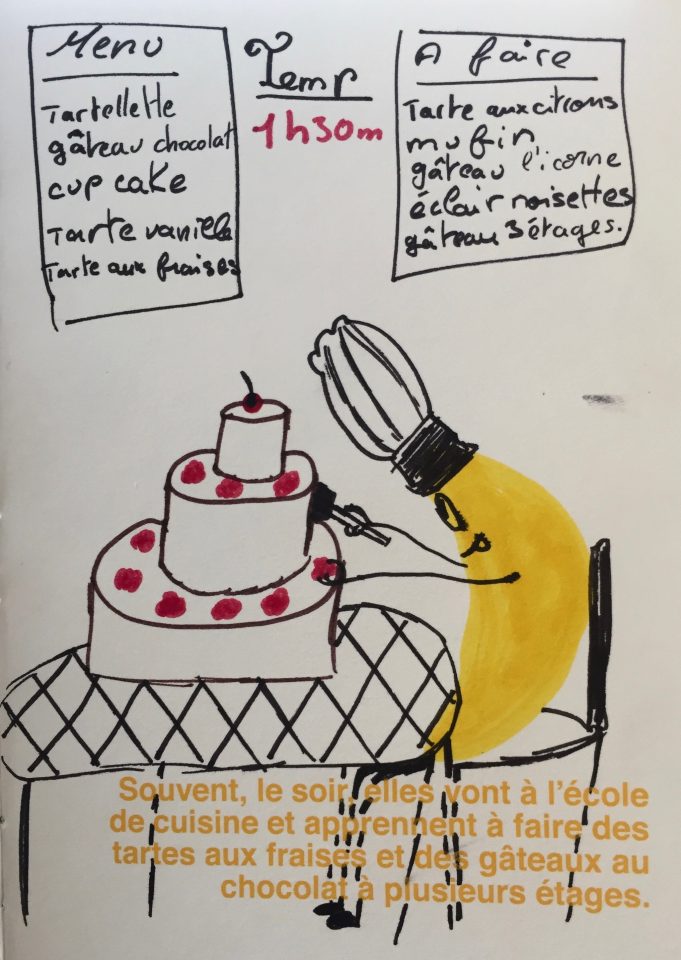 Menu
Tartellette
gâteau chocolat
cup cake
Tarte vanille
Tarte aux fraises
Temp
1h30m
A faire
Tarte aux citrons
mufin
gâteau licorne
éclair noisettes
gâteau 3 étages.
Souvent, le soir, elles vont à l'école
de cuisine et apprennent à faire des
tartes aux fraises et des gâteaux au
chocolat à plusieurs étages.